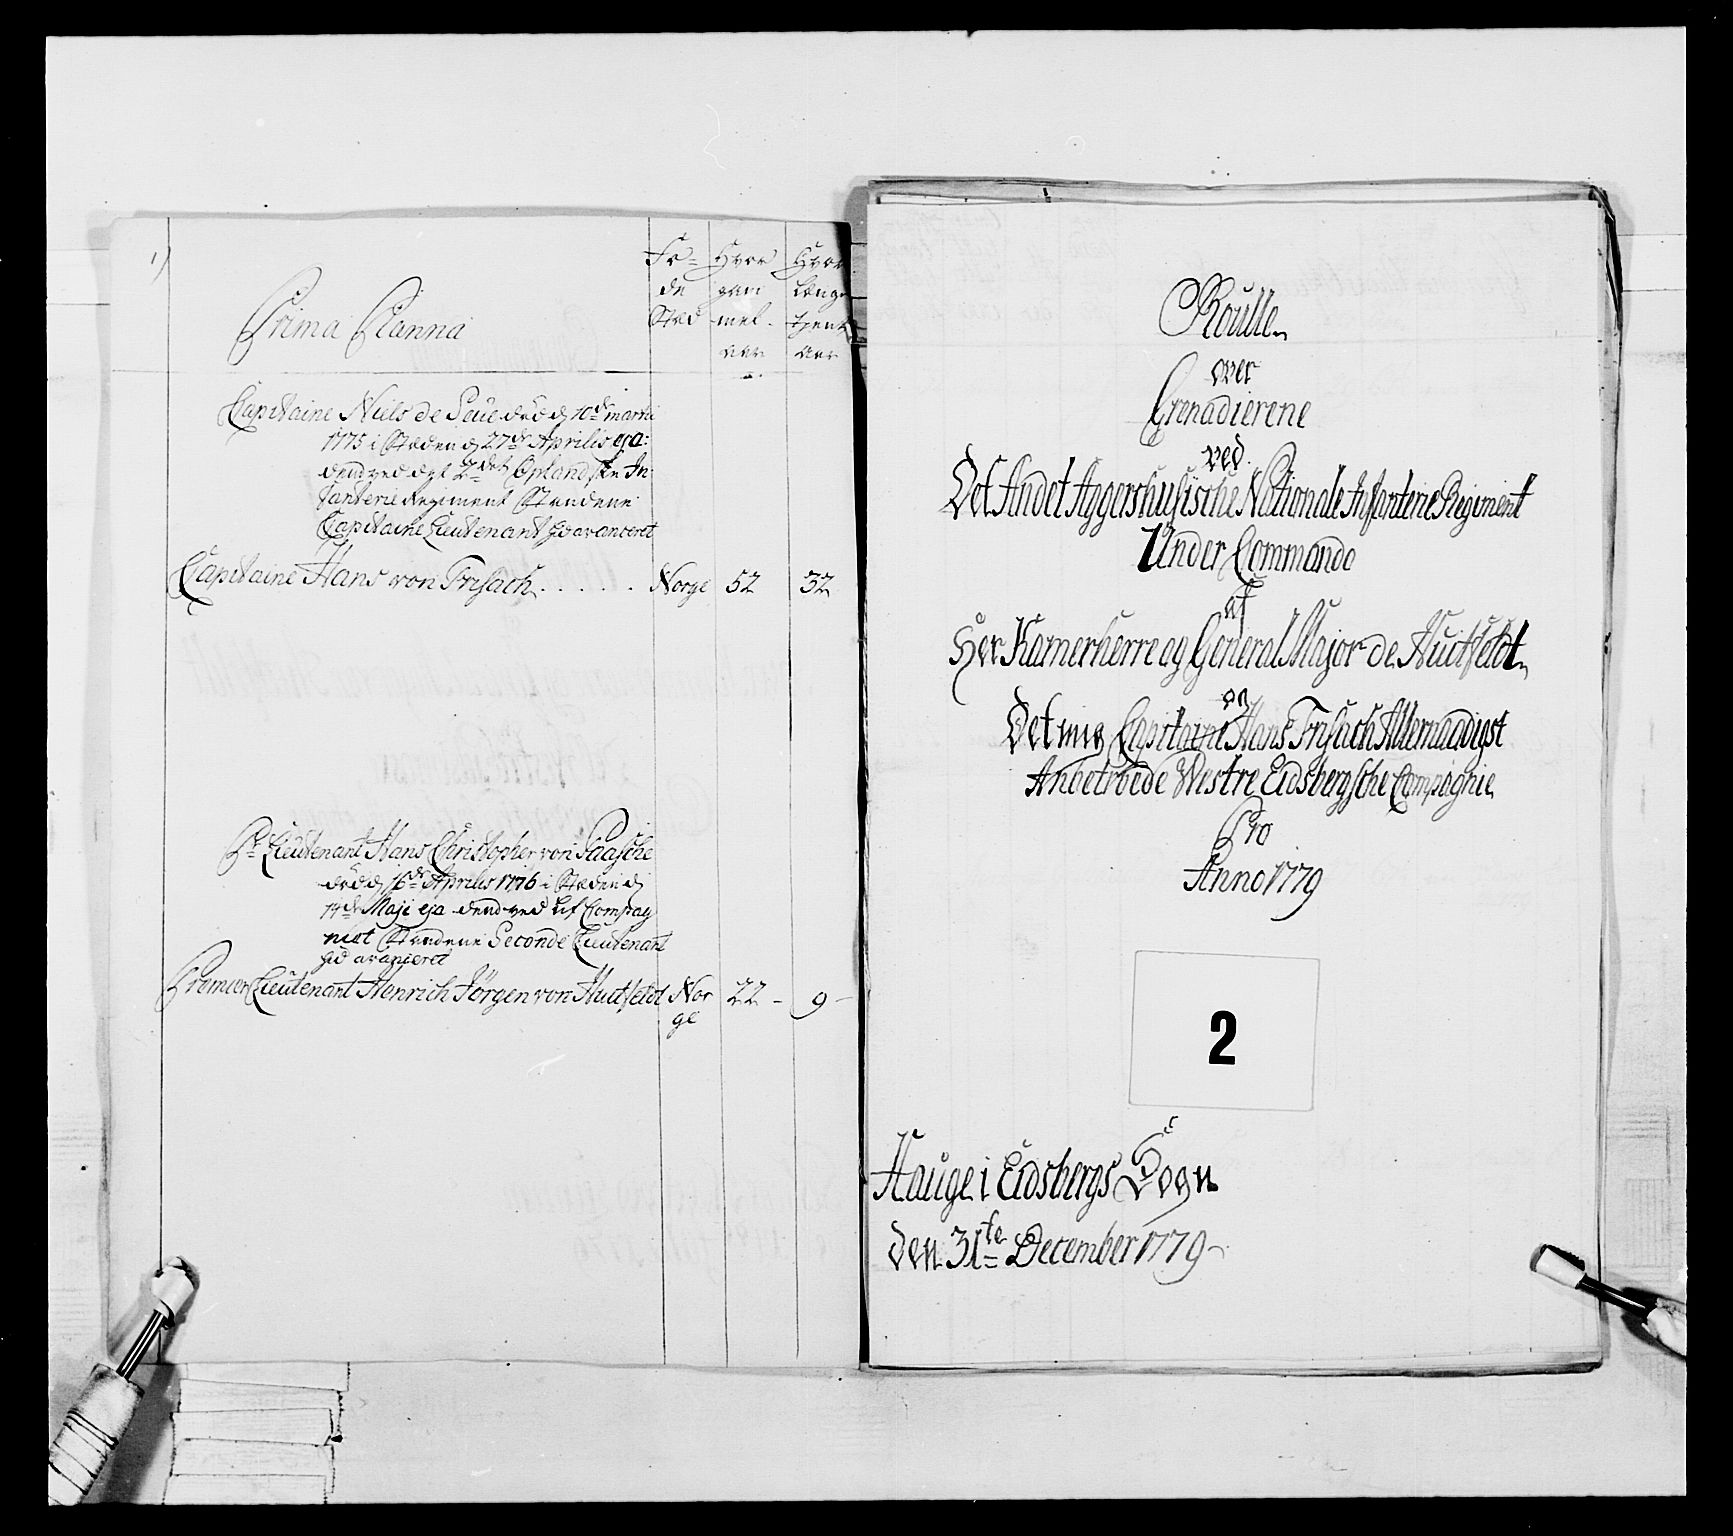 1)
Prima Planna
Fö= Hvor Hvor
de gam længe
Sted mel. tient
aar aar
Capitaine Niels de Seue död d 10de martii
1775 i Steden d 27de Aprilis eja:
dend ved det 2det Oplandske In
fanterie Regiment Staaende
Capitaine Lieutenant hid avanceret
Capitaine Hans von Frisach . . . . . Norge 52 32
Pr Lieutenant Hans Christopher von Paasche
död d 16de Aprilis 1776 i Steden d
14de Maji eja dend ved Lif Compag
niet Staaende Seconde Lieutenant
hid avanceret
Premier Lieutenant Henrich Jörgen von Huitfeldt Nor 22 - 9 -
ge
Roulle
over
Grenadierene
ved
Det Andet Aggershusische Nationale Infanterie Regiment
Under Commando
af
Her Kamerherre og General Major de Huitfeldt
og
Det mig Capitaine Hans Frisach Allernaadigst
Anbetroede Westre Eidsbergsche Compagnie
Pro
Anno 1779
2
Hauge i Eidsbergs Sogn
den 31te December 1779